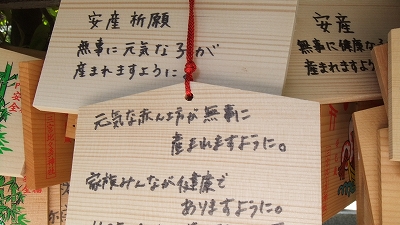 安産祈願
無事に元気な子が
産まれますように
安産
無事に健康な
産まれますよう
元気な赤ん坊が無事に
産まれますように。
家族みんなが健康で
ありますように。